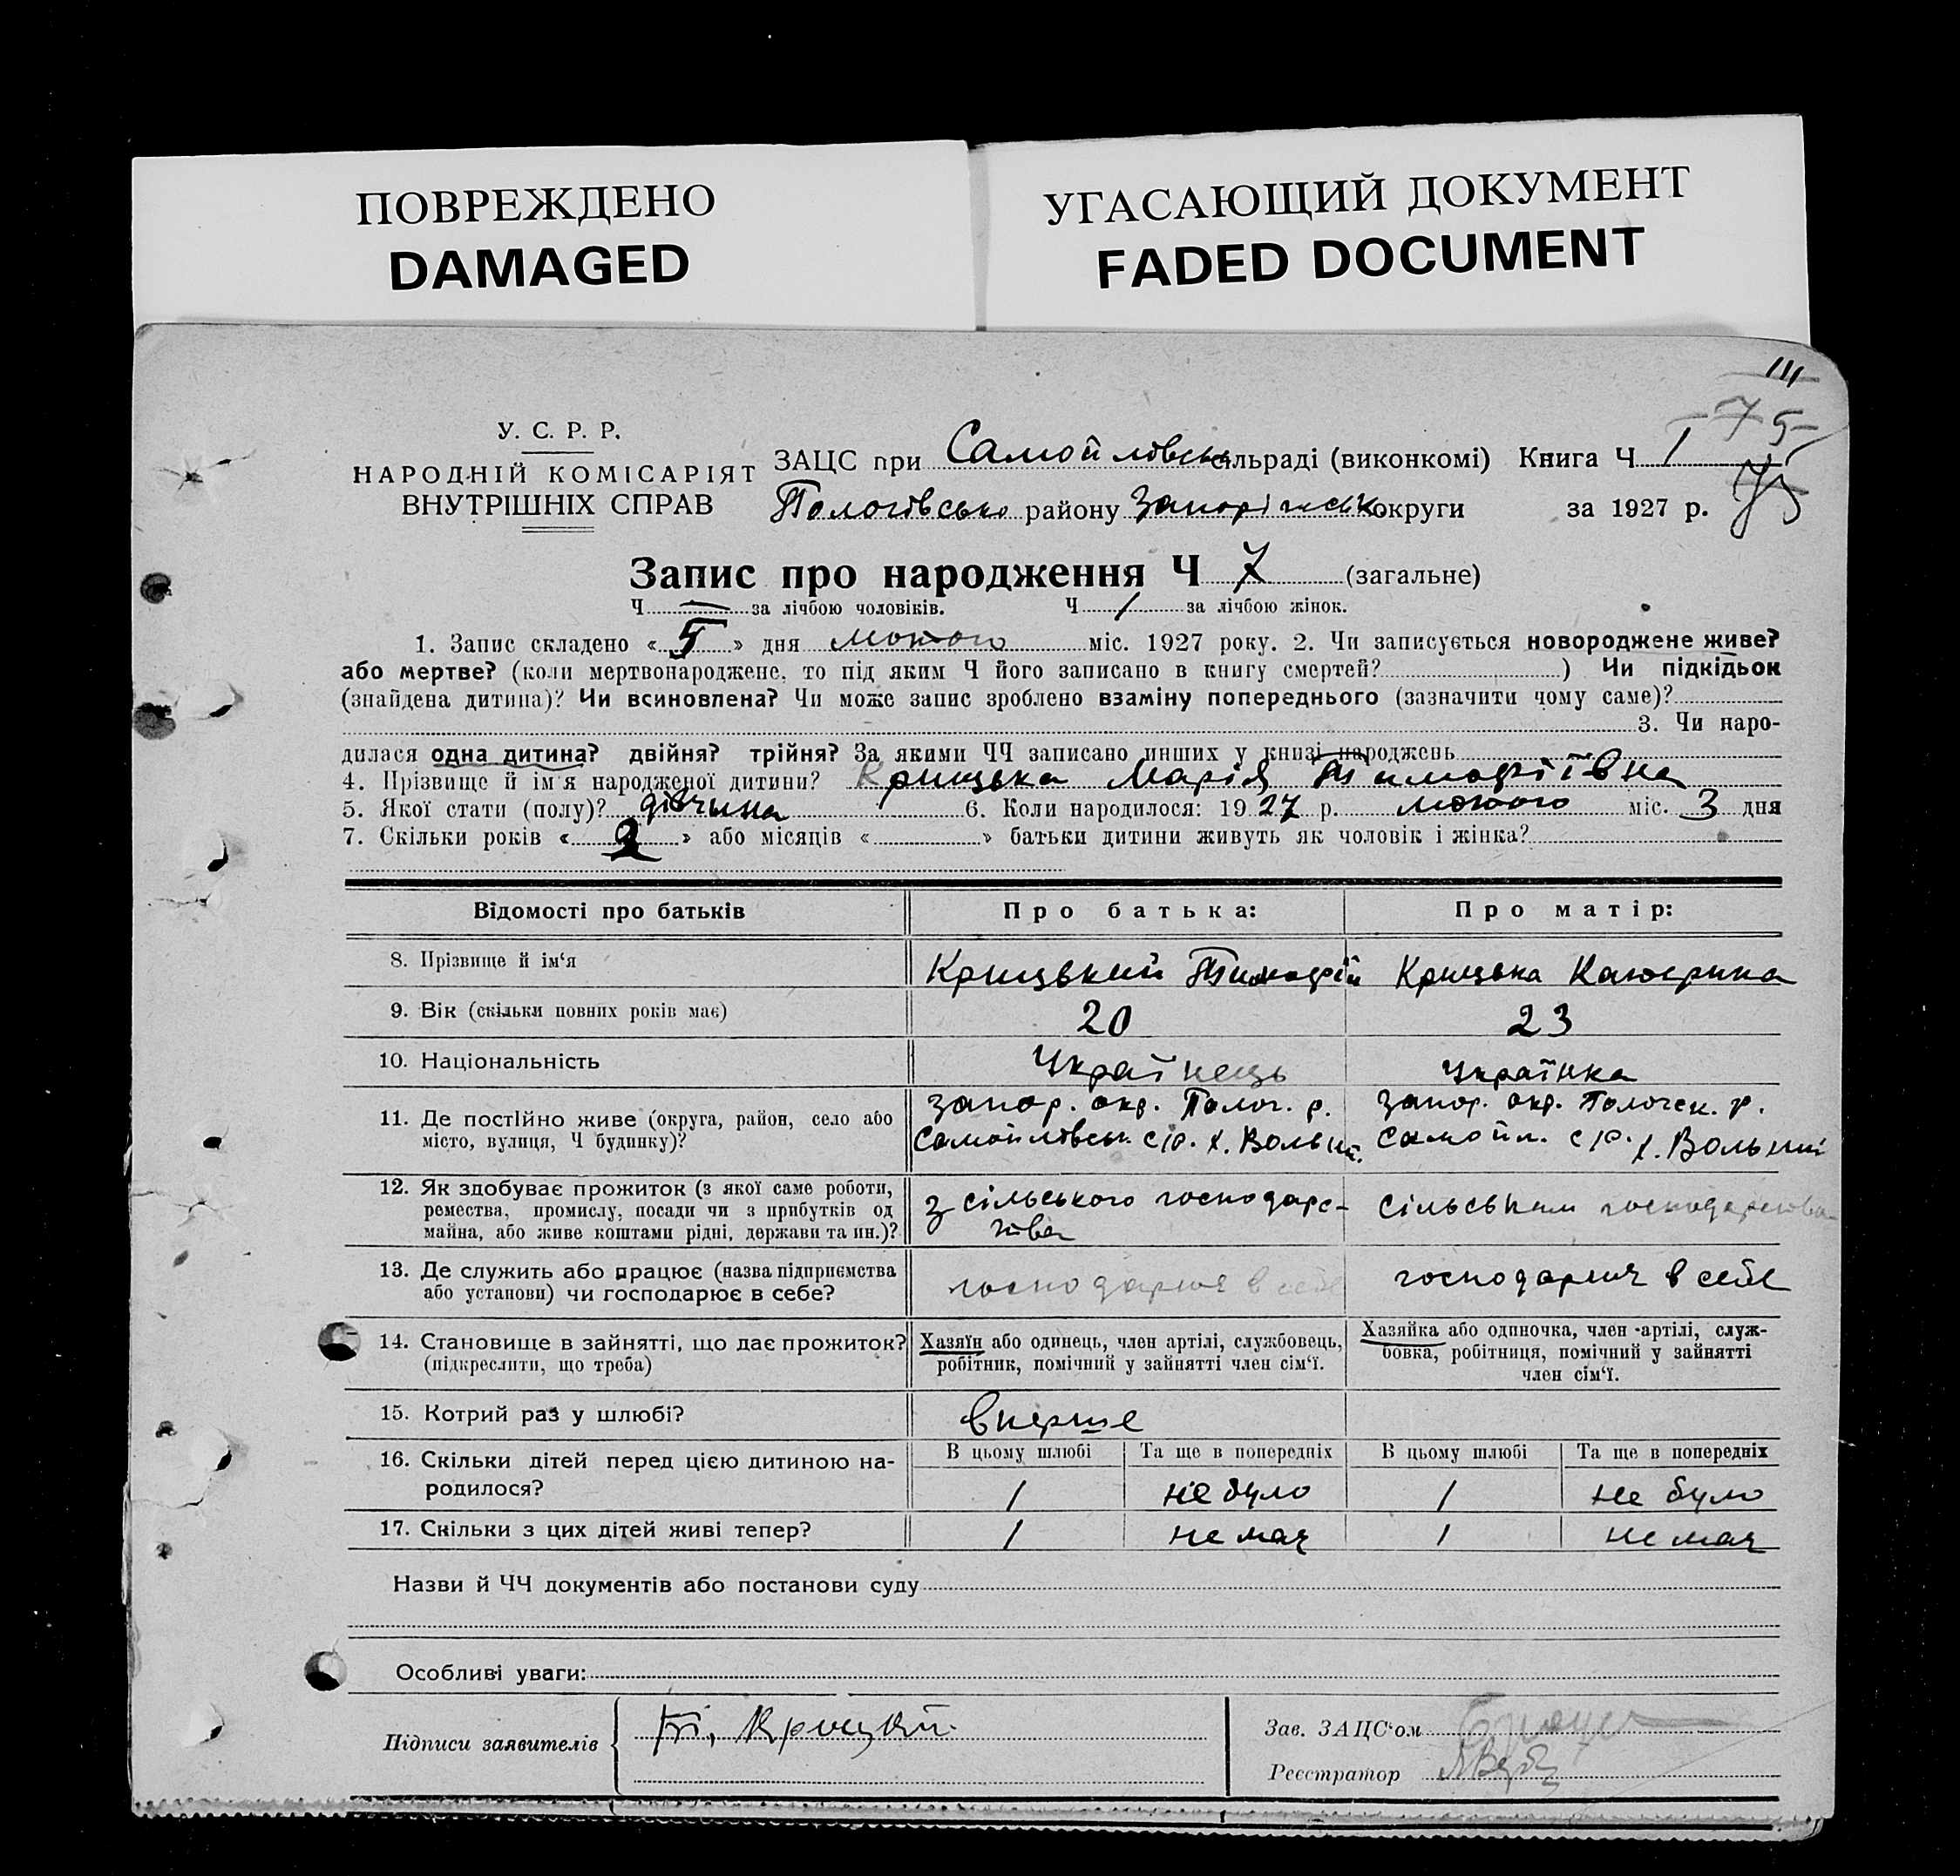 ПОВРЕЖДЕНО
DAMAGED
УГАСАЮЩИЙ ДОКУМЕНТ
FADED DOCUMENT
111
75
75
У. С. Р. Р.
НАРОДНІЙ КОМІСАРІЯТ
ВНУТРІШНІХ СПРАВ
ЗАЦС при Самойлівськ сільраді (виконкомі) Книга Ч 1
Пологівсько району Запоріжськ округи за 1927 р.
Запис про народження Ч 7 (загальне)
Ч — за лічбою чоловіків. Ч 1 за лічбою жінок.
1. Запис складено « 5 » дня лютого міс. 1927 року. 2. Чи записується новороджене живе?
або мертве? (коли мертвонароджене, то під яким Ч його записано в книгу смертей? ) Чи підкідьок
(знайдена дитина)? Чи всиновлена? Чи може запис зроблено взаміну попереднього (зазначити чому саме)?
3. Чи наро-
дилася одна дитина? двійня? трійня? За якими ЧЧ записано инших у книзі народжень
4. Прізвище й ім'я народженої дитини? Крицька Марія Тимофіївна
5. Якої стати (полу)? дівчина 6. Коли народилося: 1927 р. лютого міс. 3 дня
7. Скільки років « 2 » або місяців « » батьки дитини живуть як чоловік і жінка?
Відомості про батьків Про батька: Про матір:
8. Прізвище й ім'я Крицький Тимофій Крицька Катерина
9. Вік (скільки повних років має) 20 23
10. Національність Українець Українка
11. Де постійно живе (округа, район, село або
місто, вулиця, Ч будинку)?
Запор. окр. Полог. р.
Самойлівськ. с/р. х. Вольн.
Запор. окр. Пологск. р.
Самойл. с/р. х. Вольний
12. Як здобуває прожиток (з якої саме роботи,
ремества, промислу, посади чи з прибутків од
майна, або живе коштами рідні, держави та ин.)?
з сільського господарс-
тва
сільським господарства
13. Де служить або працює (назва підприємства
або установи) чи господарює в себе?
господарює в себе господарює в себе
14. Становище в зайнятті, що дає прожиток?
(підкреслити, що треба)
Хазяїн або одинець, член артілі, службовець,
робітник, помічний у зайнятті член сім'ї.
Хазяйка або одиночка, член артілі, служ-
бовка, робітниця, помічний у зайнятті
член сім'ї.
15. Котрий раз у шлюбі? вперше
16. Скільки дітей перед цією дитиною на-
родилося?
В цьому шлюбі Та ще в попередніх В цьому шлюбі Та ще в попередніх
1 не було 1 не було
17. Скільки з цих дітей живі тепер? 1 не має 1 не має
Назви й ЧЧ документів або постанови суду
Особливі уваги:
Підписи заявителів Крицкий
Зав. ЗАЦС'ом
Реєстратор